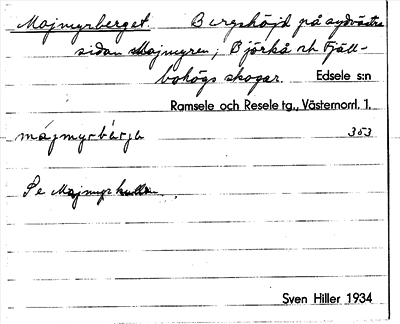 Majmyrberget. Bergshöjd på sydvästra
sidan Majmyren; Björkå och Fjäll-
bohögs skogar. Edsele s:n
Ramsele och Resele tg., Västernorrl. l.
májmyrbärje 353
Se Majmyrkullen.
Sven Hiller 1934